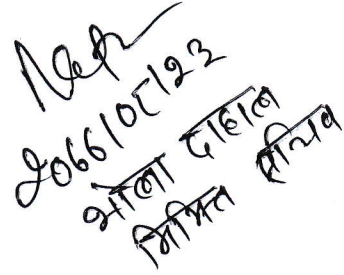 २०६६।०८।२३
भोला दाहाल
निमित्त सचिव